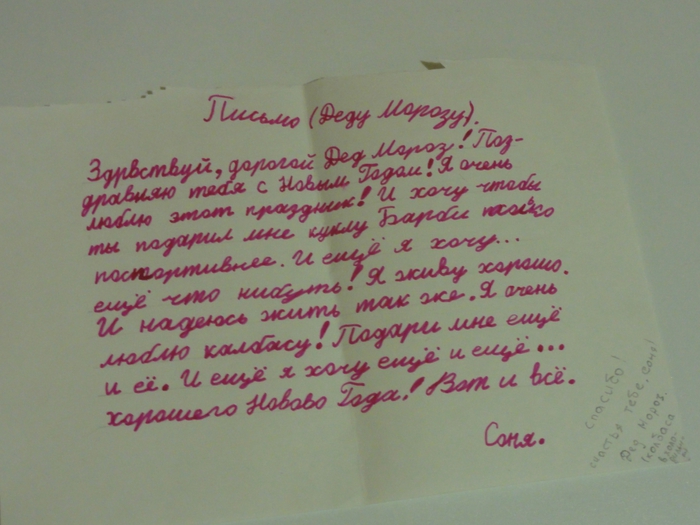 Письмо (Деду Морозу).
Здрвствуй, дорогой Дед Мороз! Поз-
дравляю тебя с Новым Годом! Я очень
люблю этот праздник! И хочу чтобы
ты подарил мне куклу Барби только
поспортивнее. И ещё я хочу...
ещё что нибуть! Я живу хорошо.
И надеюсь жить так же. Я очень
люблю калбасу! Подари мне ещё
и её. И ещё я хочу ещё и ещё...
хорошего Новово Года! Вот и всё.
Соня.
Спасибо!
счастья тебе, Соня!
Дед мороз.
(колбаса